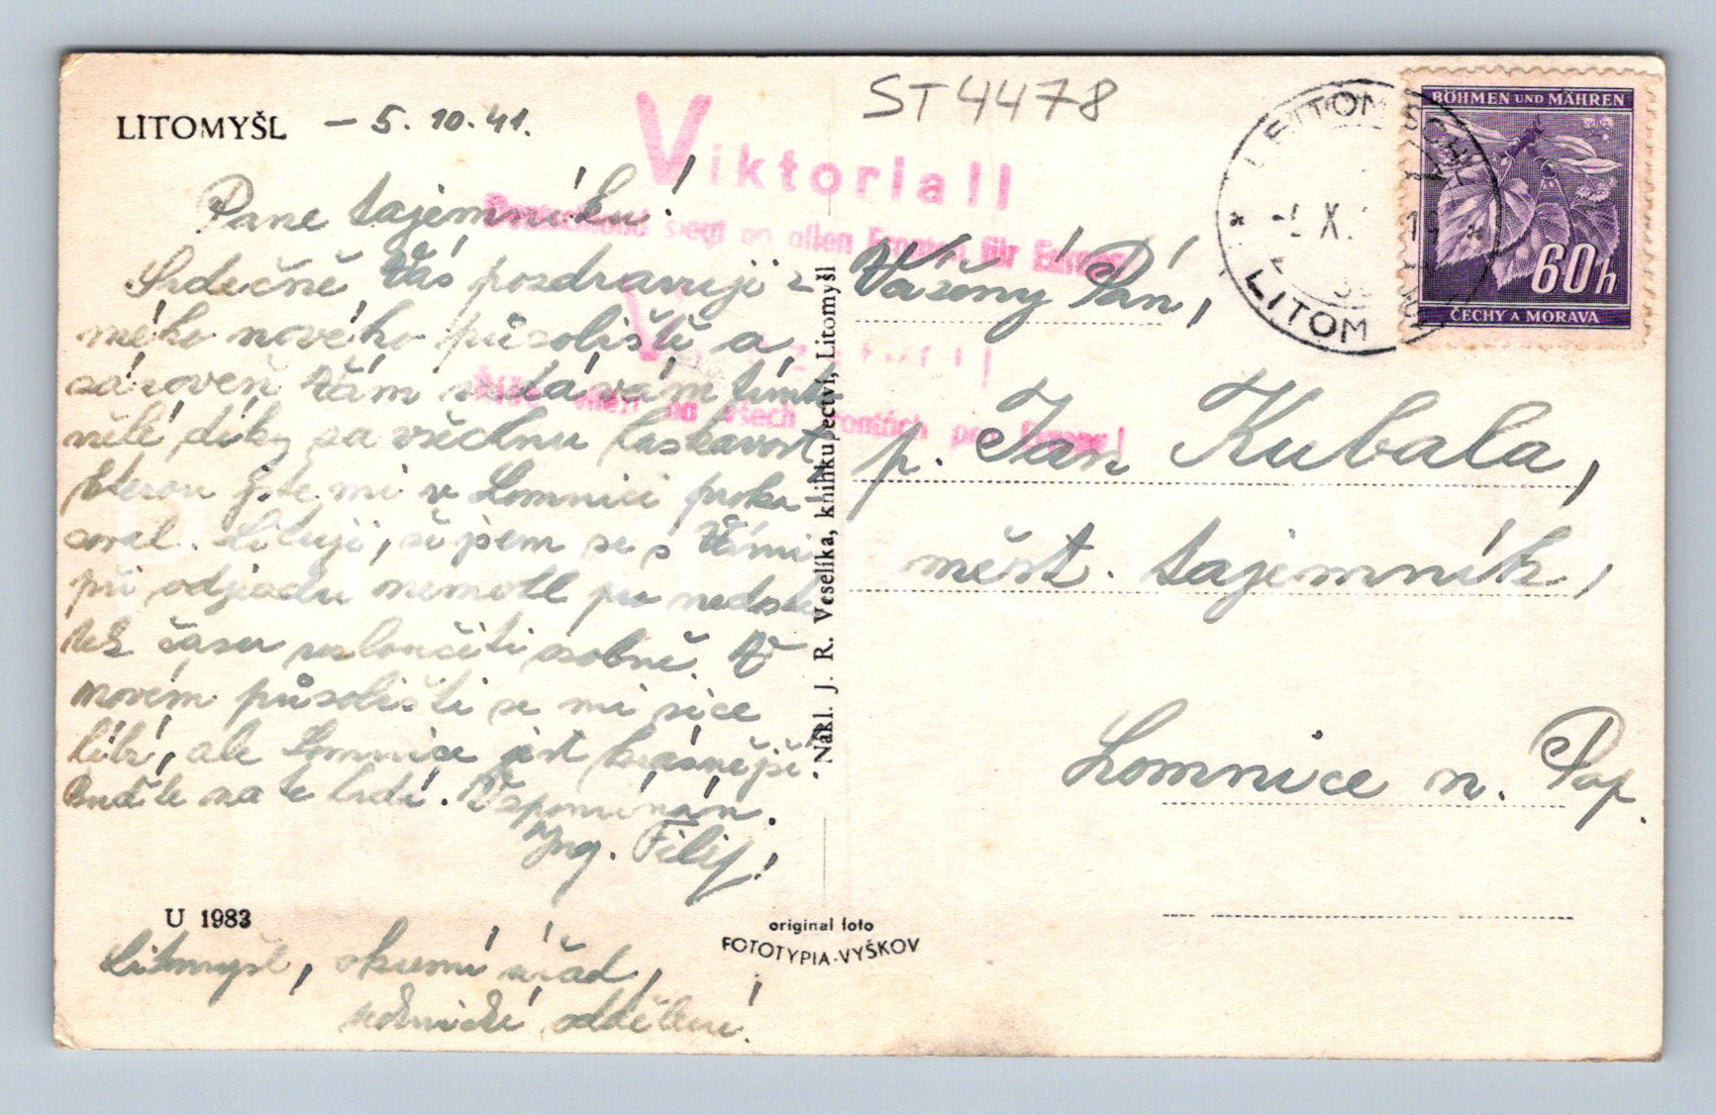 LITOMYŠL - 5.10.41.
ST 4478
Viktoria!!
Deutschland siegt an allen Fronten für Europa
V
Říše vítězí na všech frontách pro Evropu!
LEITOMISCHL
LITOMYŠL
BÖHMEN UND MÄHREN
60h
ČECHY A MORAVA
Pane tajemníku!
Srdečně Vás pozdravuji z
mého nového působiště a
zároveň Vám vzdávám tímto
vělé díky za všechnu laskavost
kterou jste mi v Lomnici proka-
zoval. Lituji, že jsem se s Vámi
při odjezdu nemohl pro nedosta
tek času rozloučiti osobně. V
novém působišti se mi sice
líbí, ale Lomnice jest krásnější.
Buďte na te hrdí. Vzpomínám.
Ing. Filip,
U 1983
Litomyšl, okresní úřad,
technické oddělení.
Nákl. J. R. Veselíka, knihkupectví, Litomyšl
original foto
FOTOTYPIA-VYŠKOV
Vážený Pán,
p. Jan Kubala,
měst. tajemník,
Lomnice n. Pop.